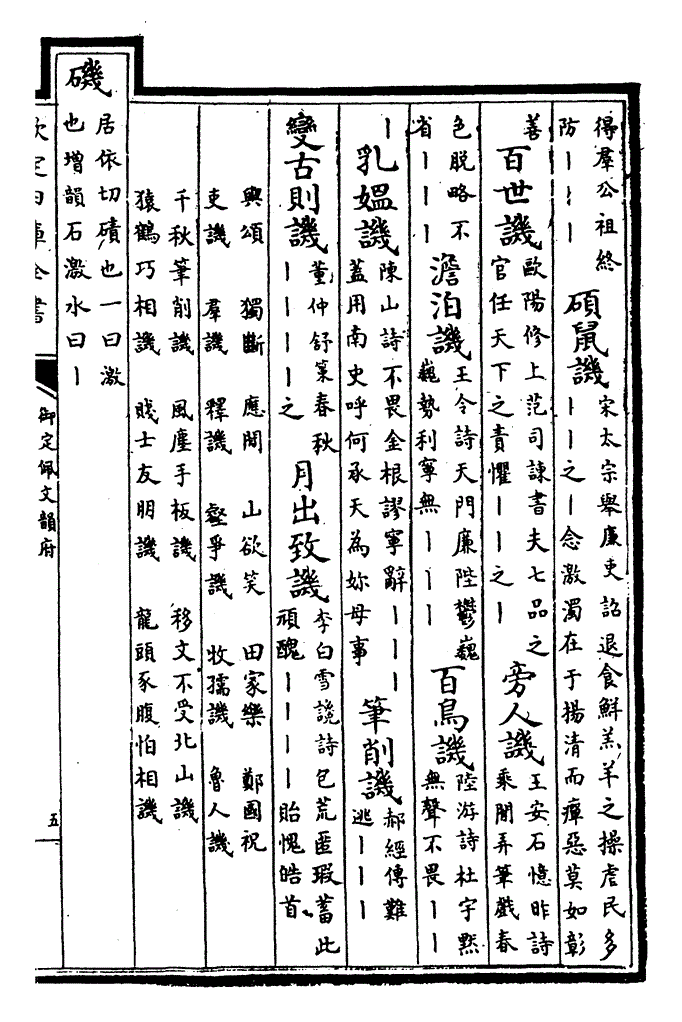 得羣公祖終
防丨丨丨
碩鼠譏
宋太宗舉廉吏詔退食鮮羔羊之操虐民多
丨丨之丨念激濁在于揚清而癉惡莫如彰
善
百世譏
歐陽修上范司諫書夫七品之
官任天下之責懼丨丨之丨
旁人譏
王安石憶昨詩
乘閒弄筆戲春
色脫略不
省丨丨丨
澹泊譏
王令詩天門廉陛鬱巍
巍勢利寧無丨丨丨
百鳥譏
陸游詩杜宇黙
無聲不畏丨丨
丨
乳媼譏
陳山詩不畏金根謬寧辭丨丨丨
蓋用南史呼何承天為妳母事
筆削譏
郝經傳難
逃丨丨丨
變古則譏
董仲舒策春秋
丨丨丨丨之
月出致譏
李白雪讒詩包荒匿瑕蓄此
頑醜丨丨丨丨貽愧皓首
輿頌 獨斷 應閒 山欲笑 田家樂 鄭國祝
吏譏 羣譏 釋譏 壑爭譏 牧孺譏 魯人譏
千秋筆削譏 風塵手板譏 移文不受北山譏
猿鶴巧相譏 賤士友朋譏 龍頭豕腹怕相譏
磯
居依切磧也一曰激
也增韻石激水曰丨
欽定四庫全書
御定佩文韻府
五